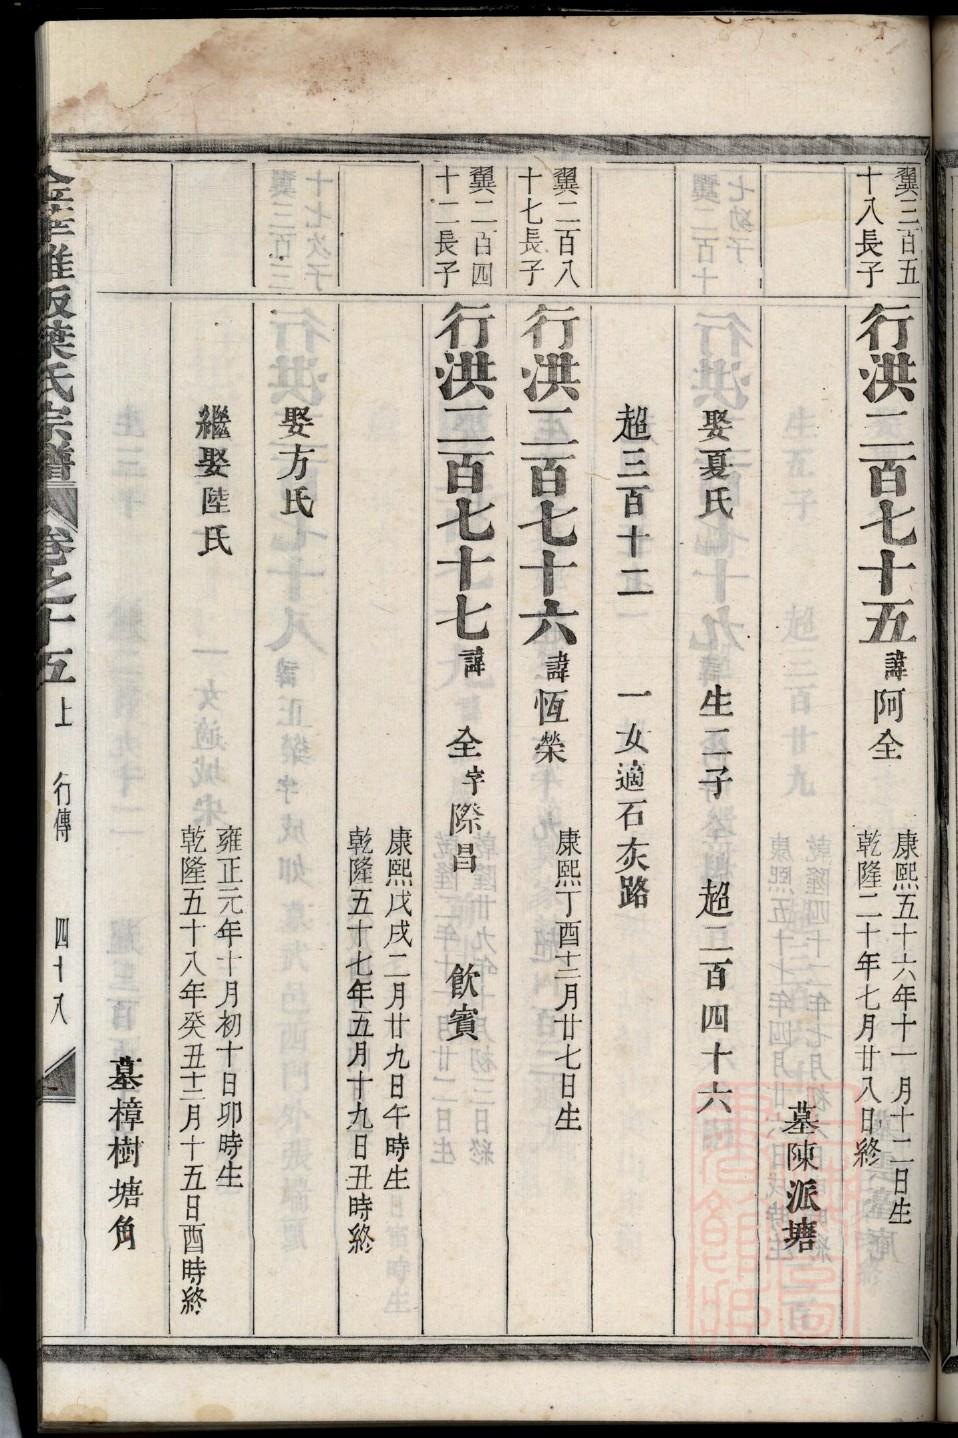 翼三百五
十八長子
行洪二百七十五 諱阿全
康熙五十六年十一月十二日生
乾隆二十年七月廿八日終
墓陳派塘
娶夏氏 生二子 超二百四十六
超三百十二 一女適石灰路
翼二百八
十七長子
行洪二百七十六 諱恆榮
康熙丁酉十二月廿七日生
翼二百四
十二長子
行洪二百七十七 諱全 字際昌 飲賓
康熙戊戌二月廿九日午時生
乾隆五十七年五月十九日丑時終
娶方氏
繼娶陸氏
雍正元年十月初十日卯時生
乾隆五十八年癸丑十二月十五日酉時終
墓樟樹塘角
葉氏宗譜 卷之十五 上 行傳 四十八